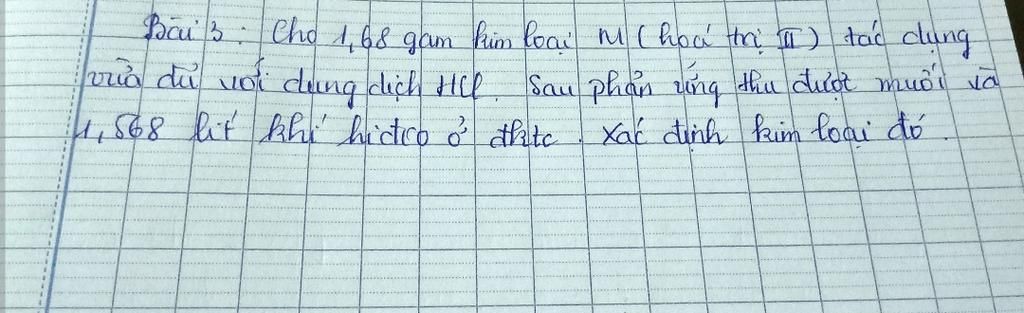 Bài 3: Cho 1,68 gam kim loại M (hoá trị II) tác dụng
vừa đủ với dung dịch HCl. Sau phản ứng thu được muối và
1,568 lít khí hiđrô ở đktc. Xác định kim loại đó.